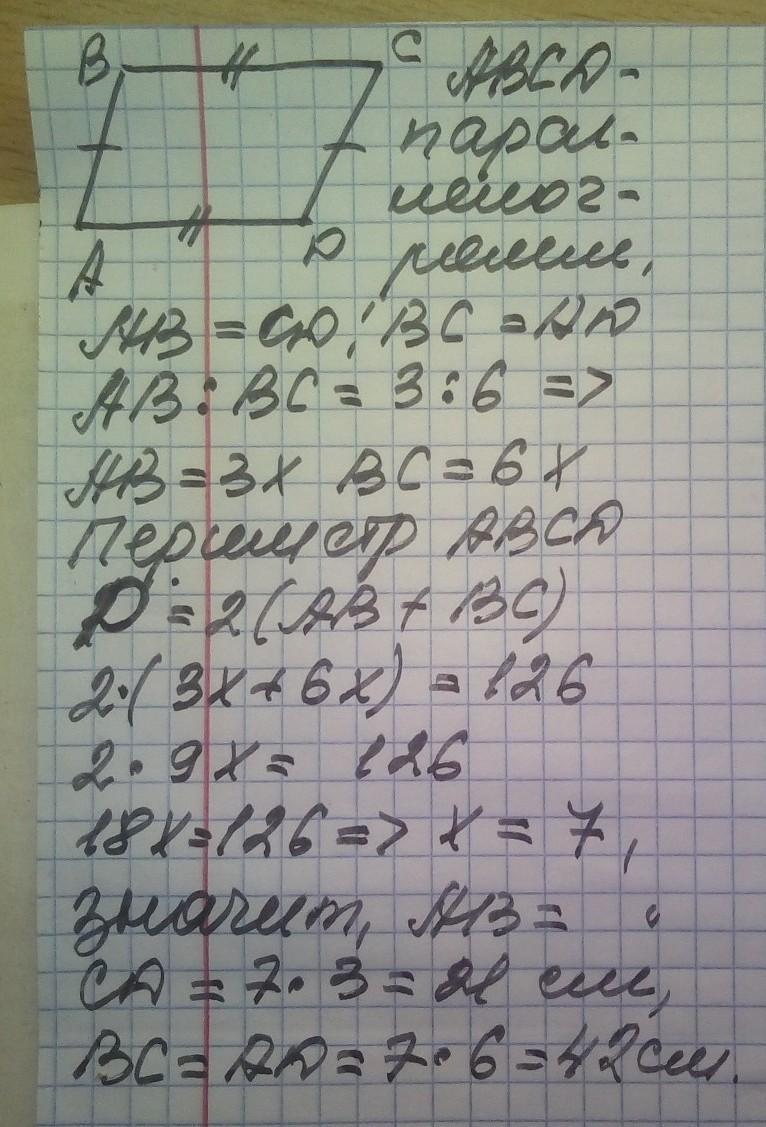 B C
A D
ABCD-
парал-
лелог-
рамм,
AB = CD; BC = AD
AB : BC = 3 : 6 =>
AB = 3x BC = 6x
Периметр ABCD
P = 2(AB + BC)
2·(3x + 6x) = 126
2·9x = 126
18x = 126 => x = 7,
значит, AB =
CD = 7·3 = 21 см,
BC = AD = 7·6 = 42 см.